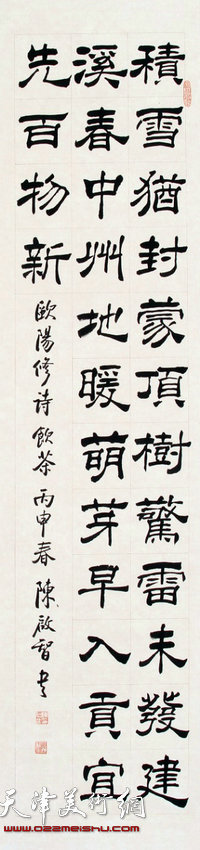 積雪猶封蒙頂樹驚雷未發建
溪春中州地暖萌芽早入貢宜
先百物新
歐陽修詩飲茶丙申春陳啟智書
天津美术网
www.022meishu.com